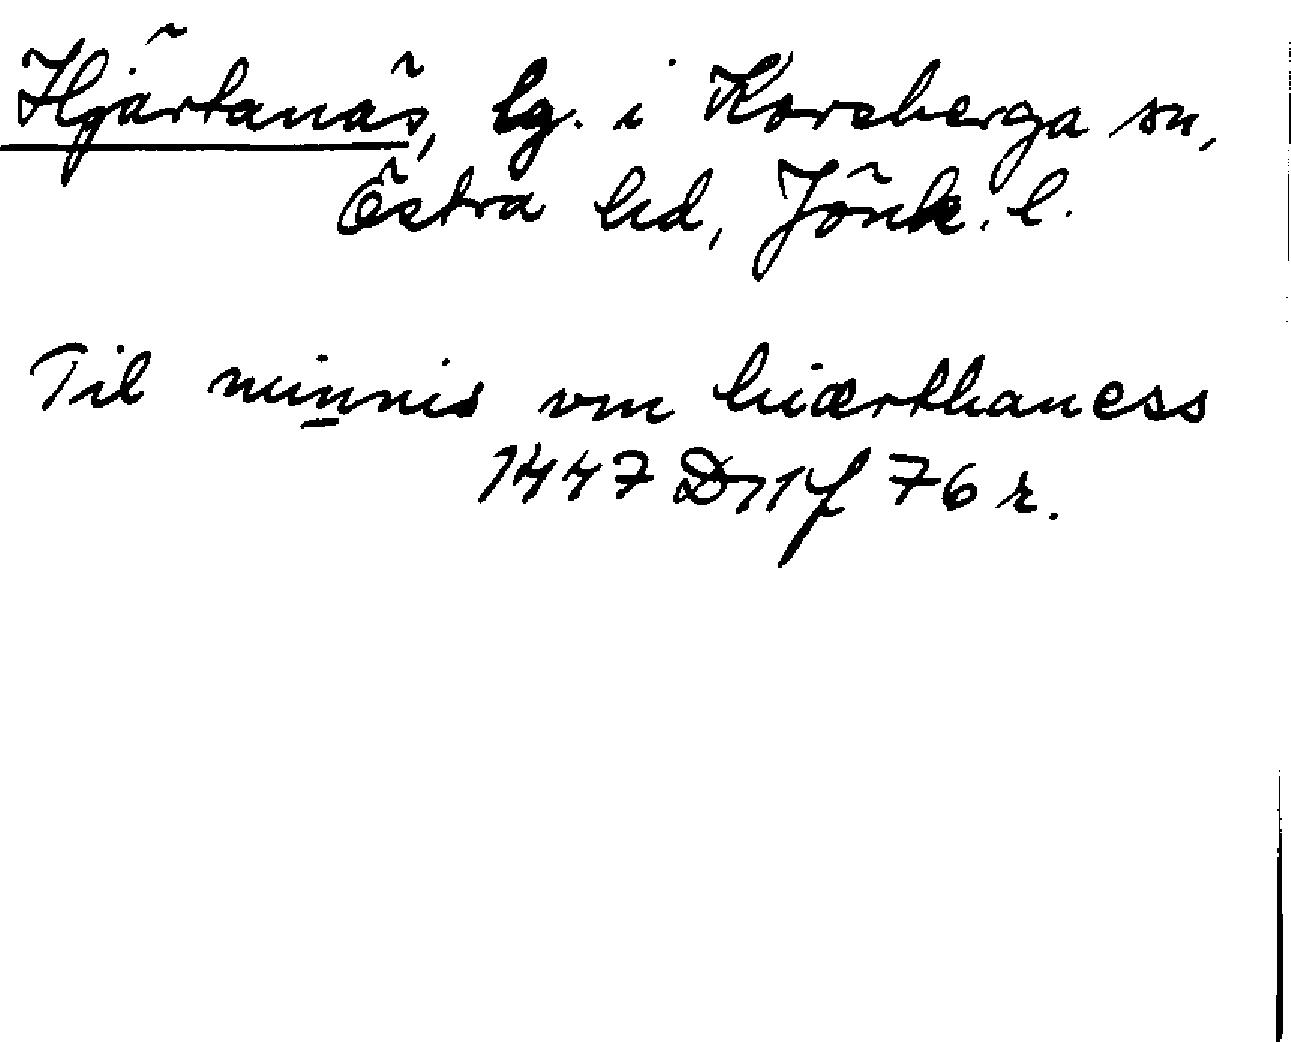 Hjärtanäs, lg. i Korsberga sn,
Östra hd, Jönk. l.
Til minnis vm hiærthaness
1447 D11 f 76 r.